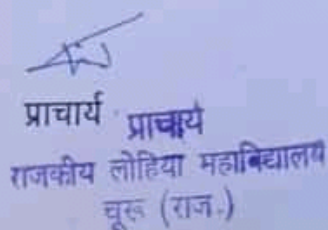 प्राचार्य प्राचार्य
राजकीय लोहिया महाविद्यालय
चूरू (राज.)